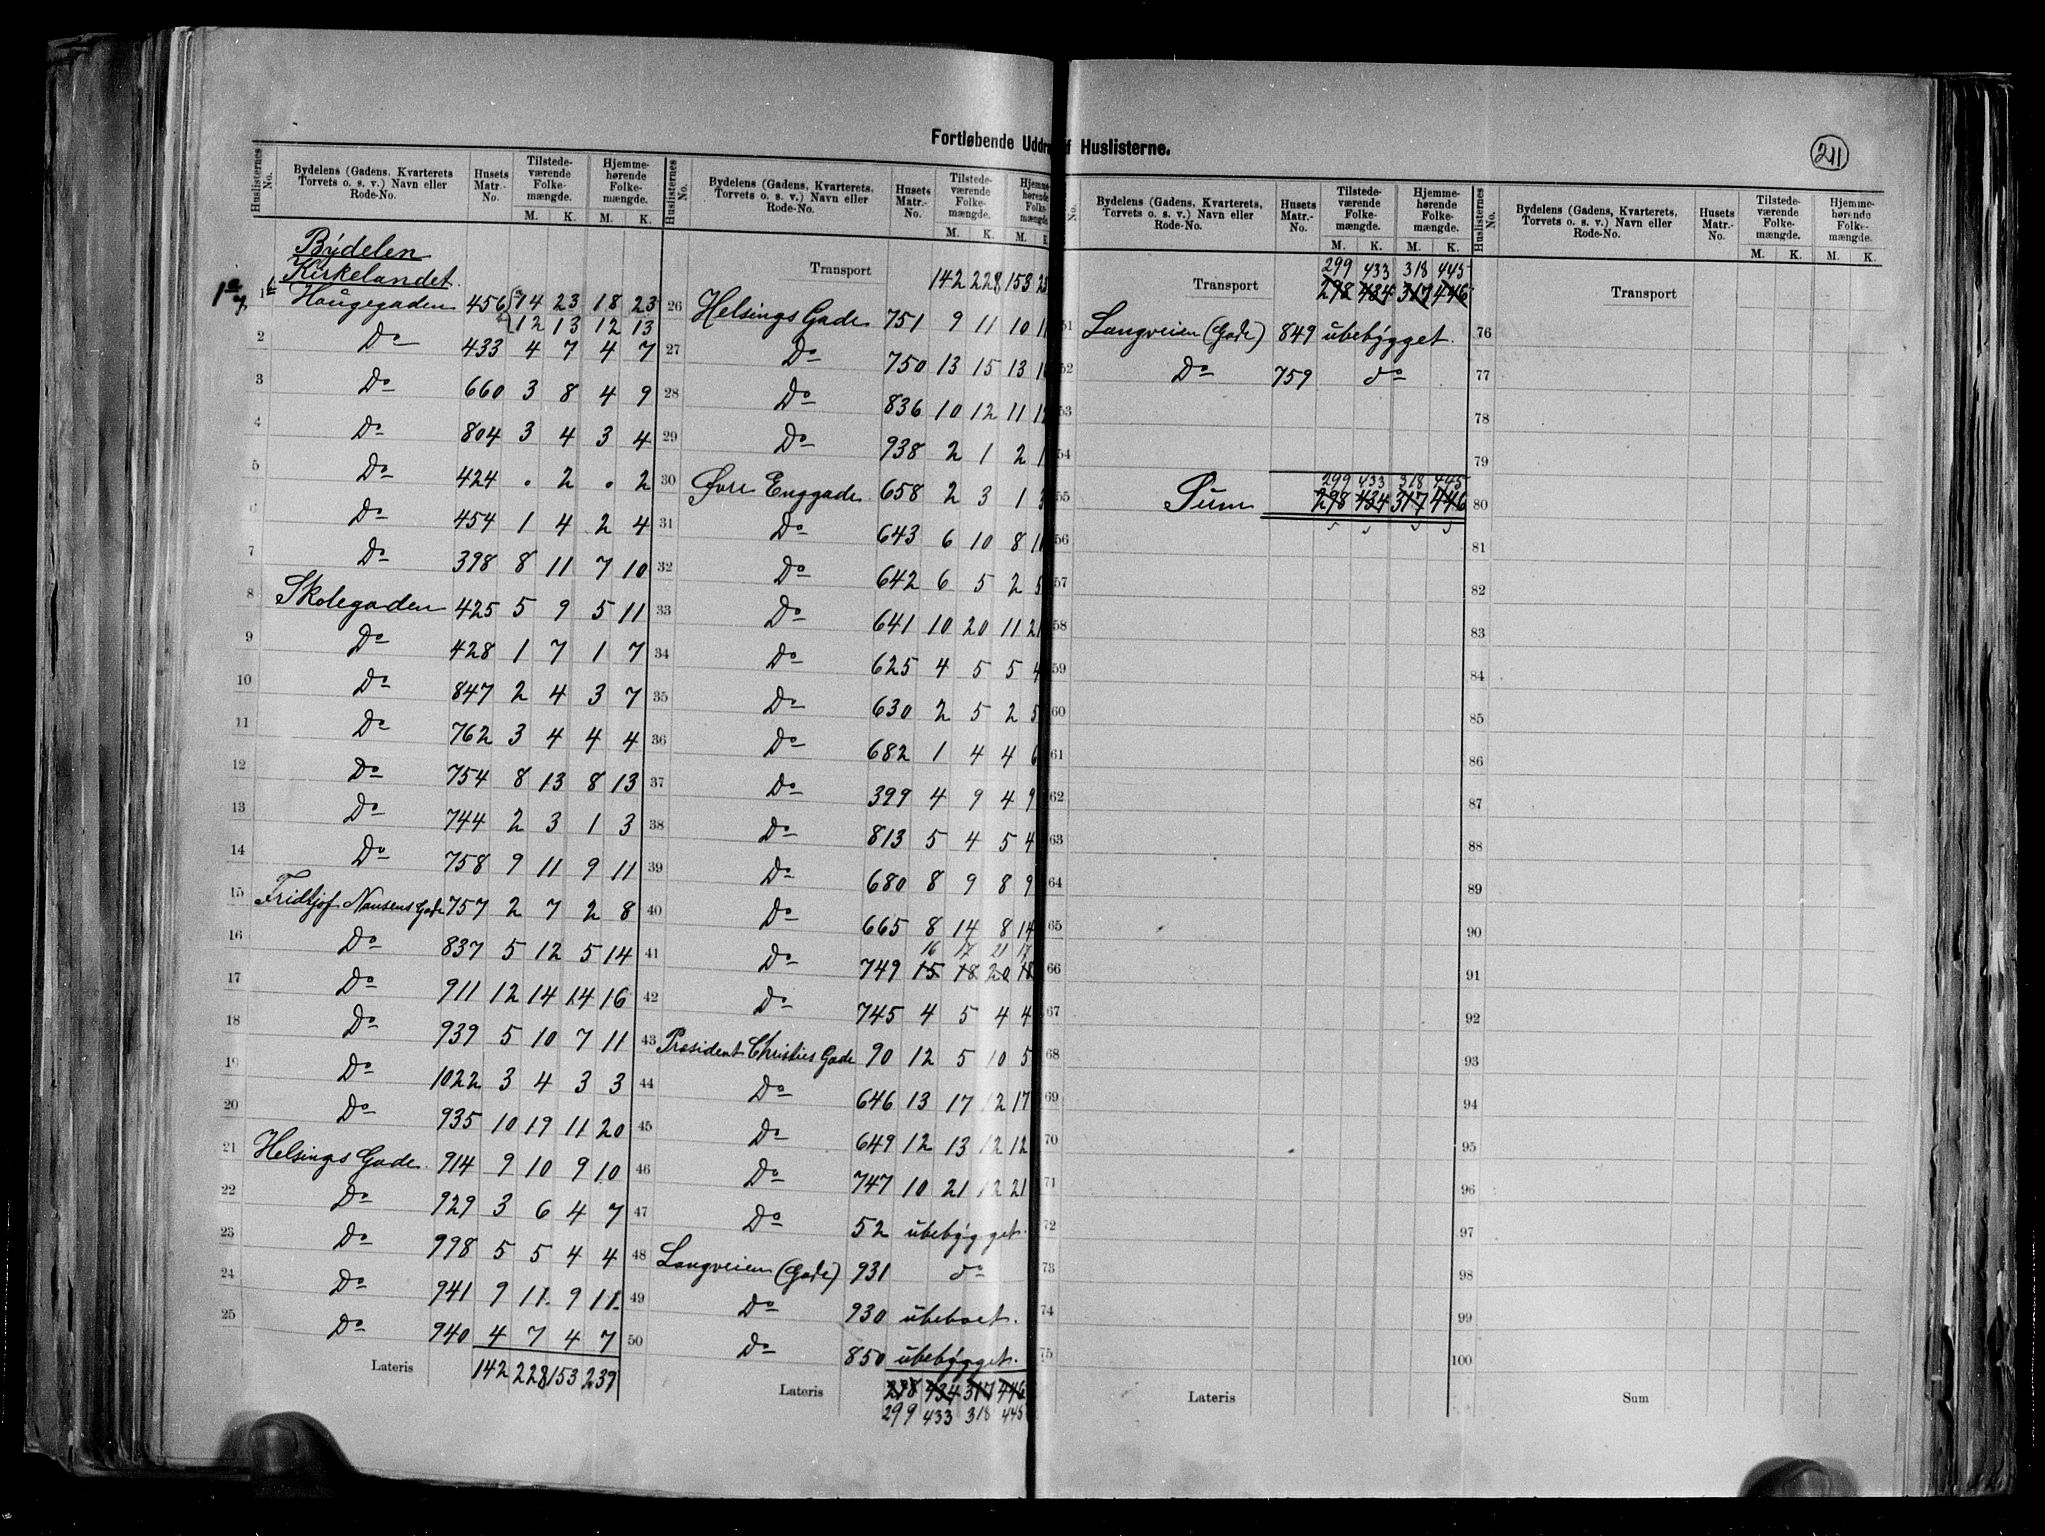 Fortløbende Uddr f Huslisterne.
211
Huslisternes No. Bydelens (Gadens, Kvarterets, Torvets o. s. v.) Navn eller Rode-No. Husets Matr.-No. Tilstedeværende Folkemængde. M. K. Hjemmehørende Folkemængde. M. K.
Bydelen
Kirkelandet.
1 a b Haugegaden 456 a 14 23 18 23
12 13 12 13
2 Do 433 4 7 4 7
3 Do 660 3 8 4 9
4 Do 804 3 4 3 4
5 Do 424 . 2 . 2
6 Do 454 1 4 2 4
7 Do 398 8 11 7 10
8 Skolegaden 425 5 9 5 11
9 Do 428 1 7 1 7
10 Do 847 2 4 3 7
11 Do 762 3 4 4 4
12 Do 754 8 13 8 13
13 Do 744 2 3 1 3
14 Do 758 9 11 9 11
15 Fridtjof Nansens Gade 757 2 7 2 8
16 Do 837 5 12 5 14
17 Do 911 12 14 14 16
18 Do 939 5 10 7 11
19 Do 1022 3 4 3 3
20 Do 935 10 19 11 20
21 Helsings Gade. 914 9 10 9 10
22 Do 929 3 6 4 7
23 Do 998 5 5 4 4
24 Do 941 9 11 9 11
25 Do 940 4 7 4 7
Lateris 142 228 153 239
Huslisternes No. Bydelens (Gadens, Kvarterets, Torvets o. s. v.) Navn eller Rode-No. Husets Matr.-No. Tilstedeværende Folkemængde. M. K. Hjemmehørende Folkemængde M. K.
Transport 142 228 153 23
26 Helsings Gade 751 9 11 10 1
27 Do 750 13 15 13 1
28 Do 836 10 12 11 1
29 Do 938 2 1 2 1
30 Øvre Enggade 658 2 3 1 3
31 Do 643 6 10 8 1
32 Do 642 6 5 2 5
33 Do 641 10 20 11 21
34 Do 625 4 5 5 4
35 Do 630 2 5 2 5
36 Do 682 1 4 4 6
37 Do 399 4 9 4 9
38 Do 813 5 4 5 4
39 Do 680 8 9 8 9
40 Do 665 8 14 8 14
16 17 21 17
41 Do 749 15 18 20 18
42 Do 745 4 5 4 4
43 Præsident Christies Gade 90 12 5 10 5
44 Do 646 13 17 12 17
45 Do 649 12 13 12 12
46 Do 747 10 21 12 21
47 Do 52 ubebygget.
48 Langveien (Gade) 931 do
49 Do 930 ubeboet.
50 Do 850 ubebygget.
Lateris 298 434 317 446
299 433 318 445
No. Bydelens (Gadens, Kvarterets, Torvets o. s. v.) Navn eller Rode-No. Husets Matr.-No. Tilstedeværende Folkemængde. M. K. Hjemmehørende Folkemængde. M. K.
299 433 318 445
Transport 298 434 317 446
51 Langveien (Gade) 849 ubebygget.
52 Do 759 do
53
54
299 433 318 445
55 Sum 298 434 317 446
56
57
58
59
60
61
62
63
64
65
66
67
68
69
70
71
72
73
74
75
Lateris
Huslisternes No. Bydelens (Gadens, Kvarterets, Torvets o. s. v.) Navn eller Rode-No. Husets Matr.-No. Tilstedeværende Folkemængde. M. K. Hjemmehørende Folkemængde. M. K.
Transport
76
77
78
79
80
81
82
83
84
85
86
87
88
89
90
91
92
93
94
95
96
97
98
99
100
Sum